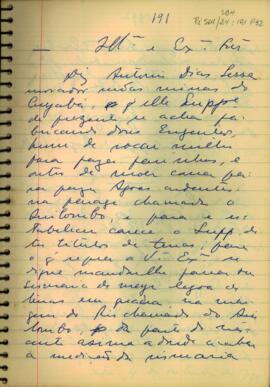 191
— Illº e Exº Snr
Diz Antonio Dias Lessa
morador nestas minas do
Cuyabá, q elle Suppe
de prezente se acha fa-
bricando dois Engenhos,
hum de socar milho
para fazer farinhas, e
outro de moer cana pa
ra fazer Agoas ardentes
na paragem chamada o
Quilombo, e para e s
tabelecer carece o Supp. de
ter titulos de terras; para
o q requer a V. Exa se
digne mandarlhe passar
Sismaria de meya legoa de
terras em quadra na mar
gem do Rio chamado do Qui
lombo, da parte do na
cente asima adonde acabar
a medição da sismaria